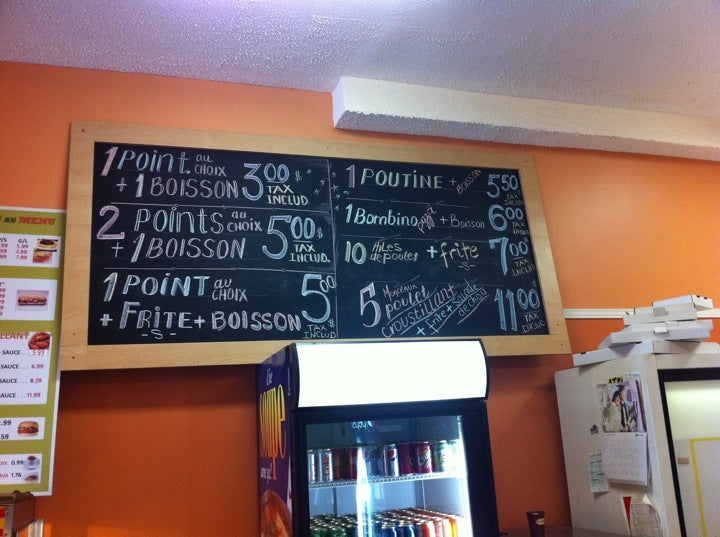 1 POINT. au CHOIX
+ 1 BOISSON 3.00 $ TAX INCLUD
2 POINTS au CHOIX
+ 1 BOISSON 5.00 $ TAX INCLUD.
1 POINT au CHOIX
+ FRITE + BOISSON 5.00 TAX INCLUD $
-S-
1 POUTINE + BOISSON 5.50 TAX INCLUD
1 Bambino + Boisson 6.00 TAX INCLUD
10 Ailes de poulet + frite 7.00 TAX INCLUD
-S-
5 Morceaux poulet Croustillant + frite + Salade de chou 11.00 TAX INCLUD
AU MENU
SAUCE ... 3.99
SAUCE .. 6.99
SAUCE .. 8.99
SAUCE .. 11.99
0.99
1.76